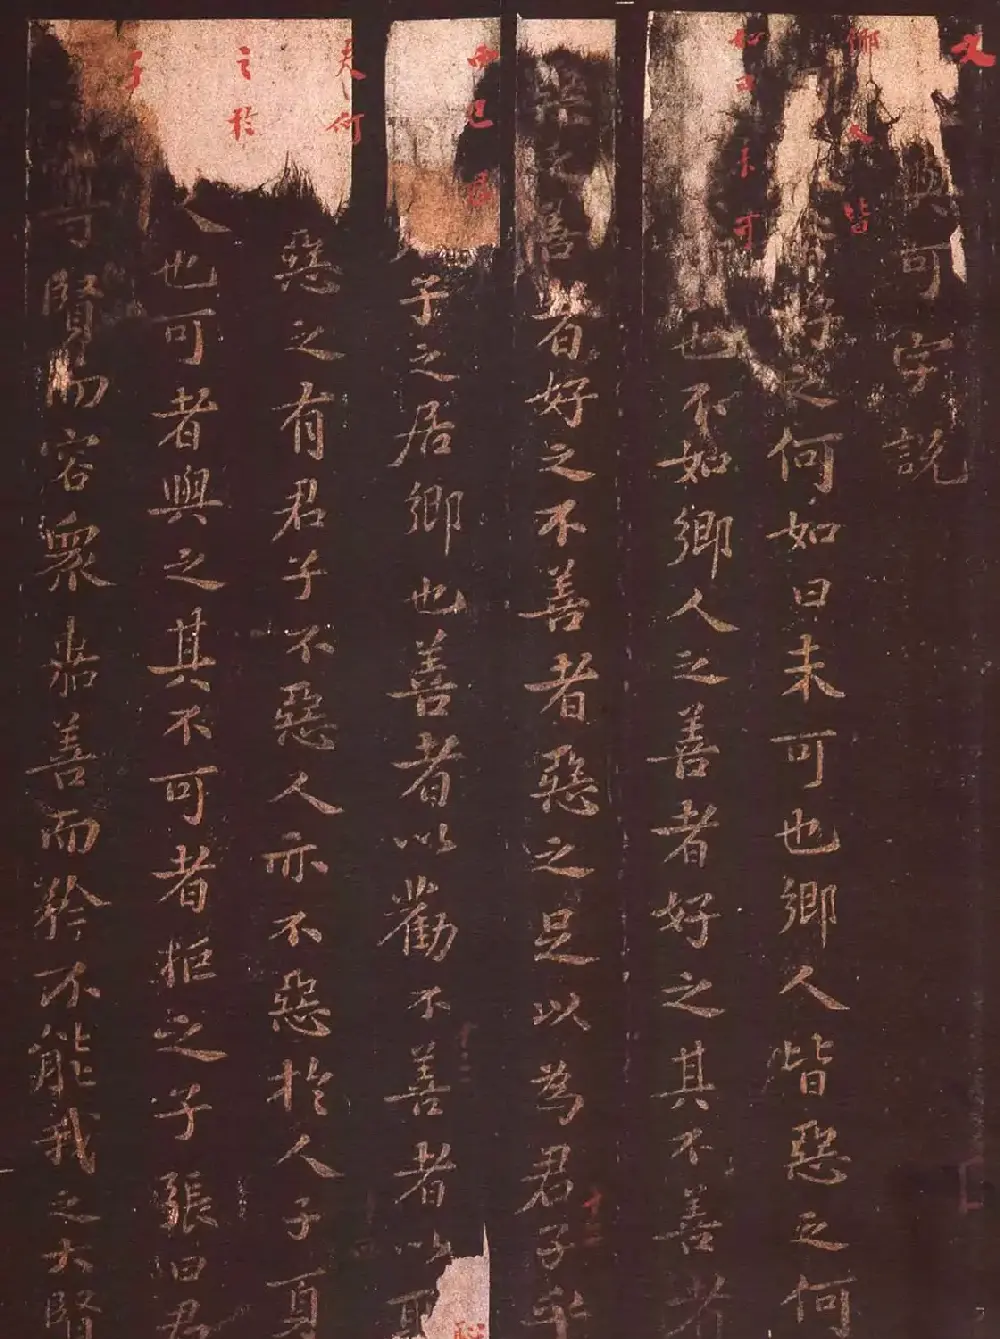 文與可字說
鄉人皆好之何如曰未可也鄉人皆惡之何
如曰未可也不如鄉人之善者好之其不善者
惡之善者好之不善者惡之足以為君子乎
而已君子之居鄉也善者以勸不善者以恥
夫何惡之有君子不惡人亦不惡於人子夏
之於人也可者與之其不可者拒之子張曰君
子尊賢而容眾嘉善而矜不能我之大賢